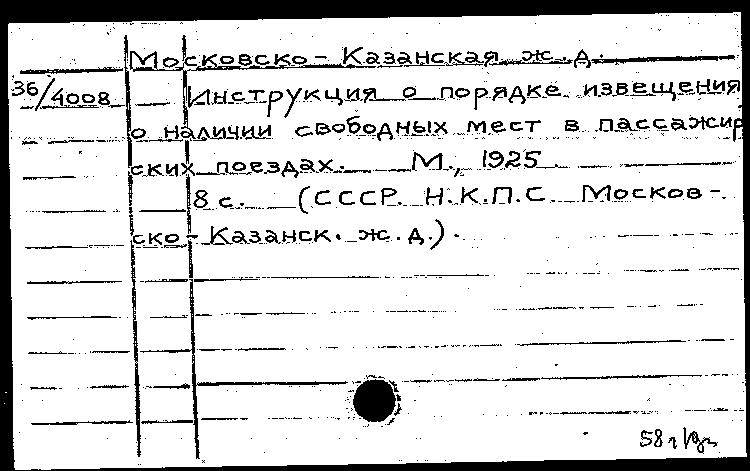 Московско-Казанская ж.д.
36/4008 Инструкция о порядке извещения
о наличии свободных мест в пассажир
ских поездах. М., 1925
8 с. (СССР. Н.К.П.С. Москов-
ско-Казанск. ж.д.).